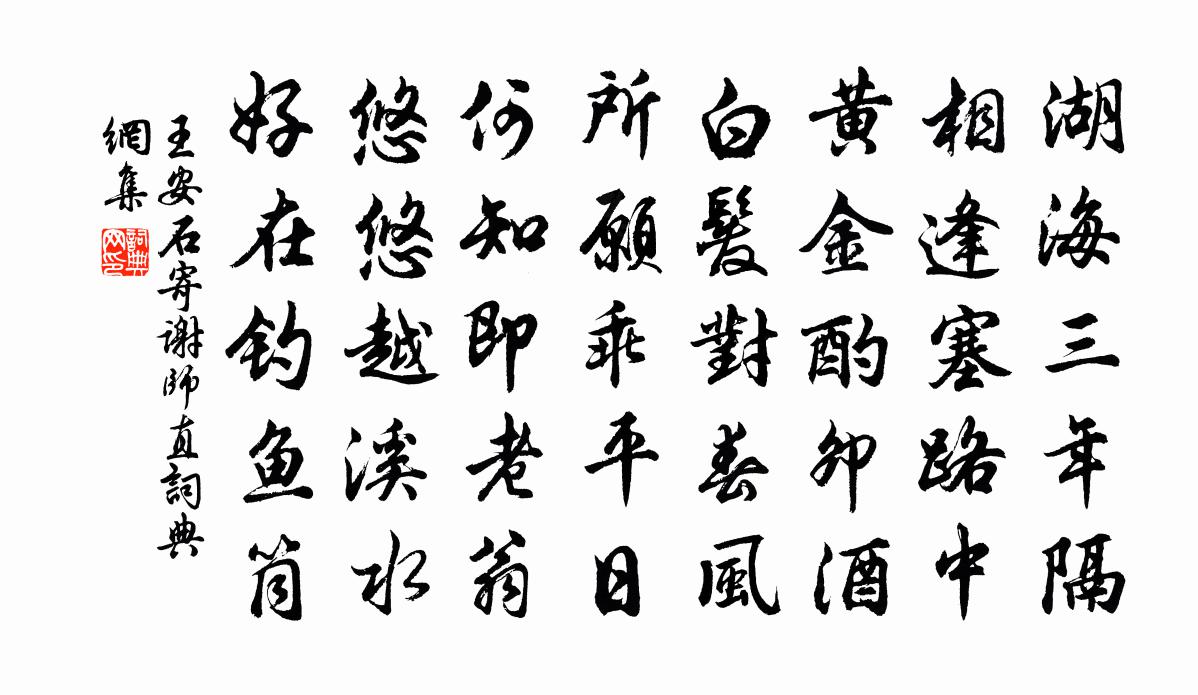 湖海三年隔
相逢塞路中
黃金酌卯酒
白髮對春風
所願乖平日
何知即老翁
悠悠越溪水
好在釣魚筒
王安石寄謝師直詞典
網集
詞典
网印